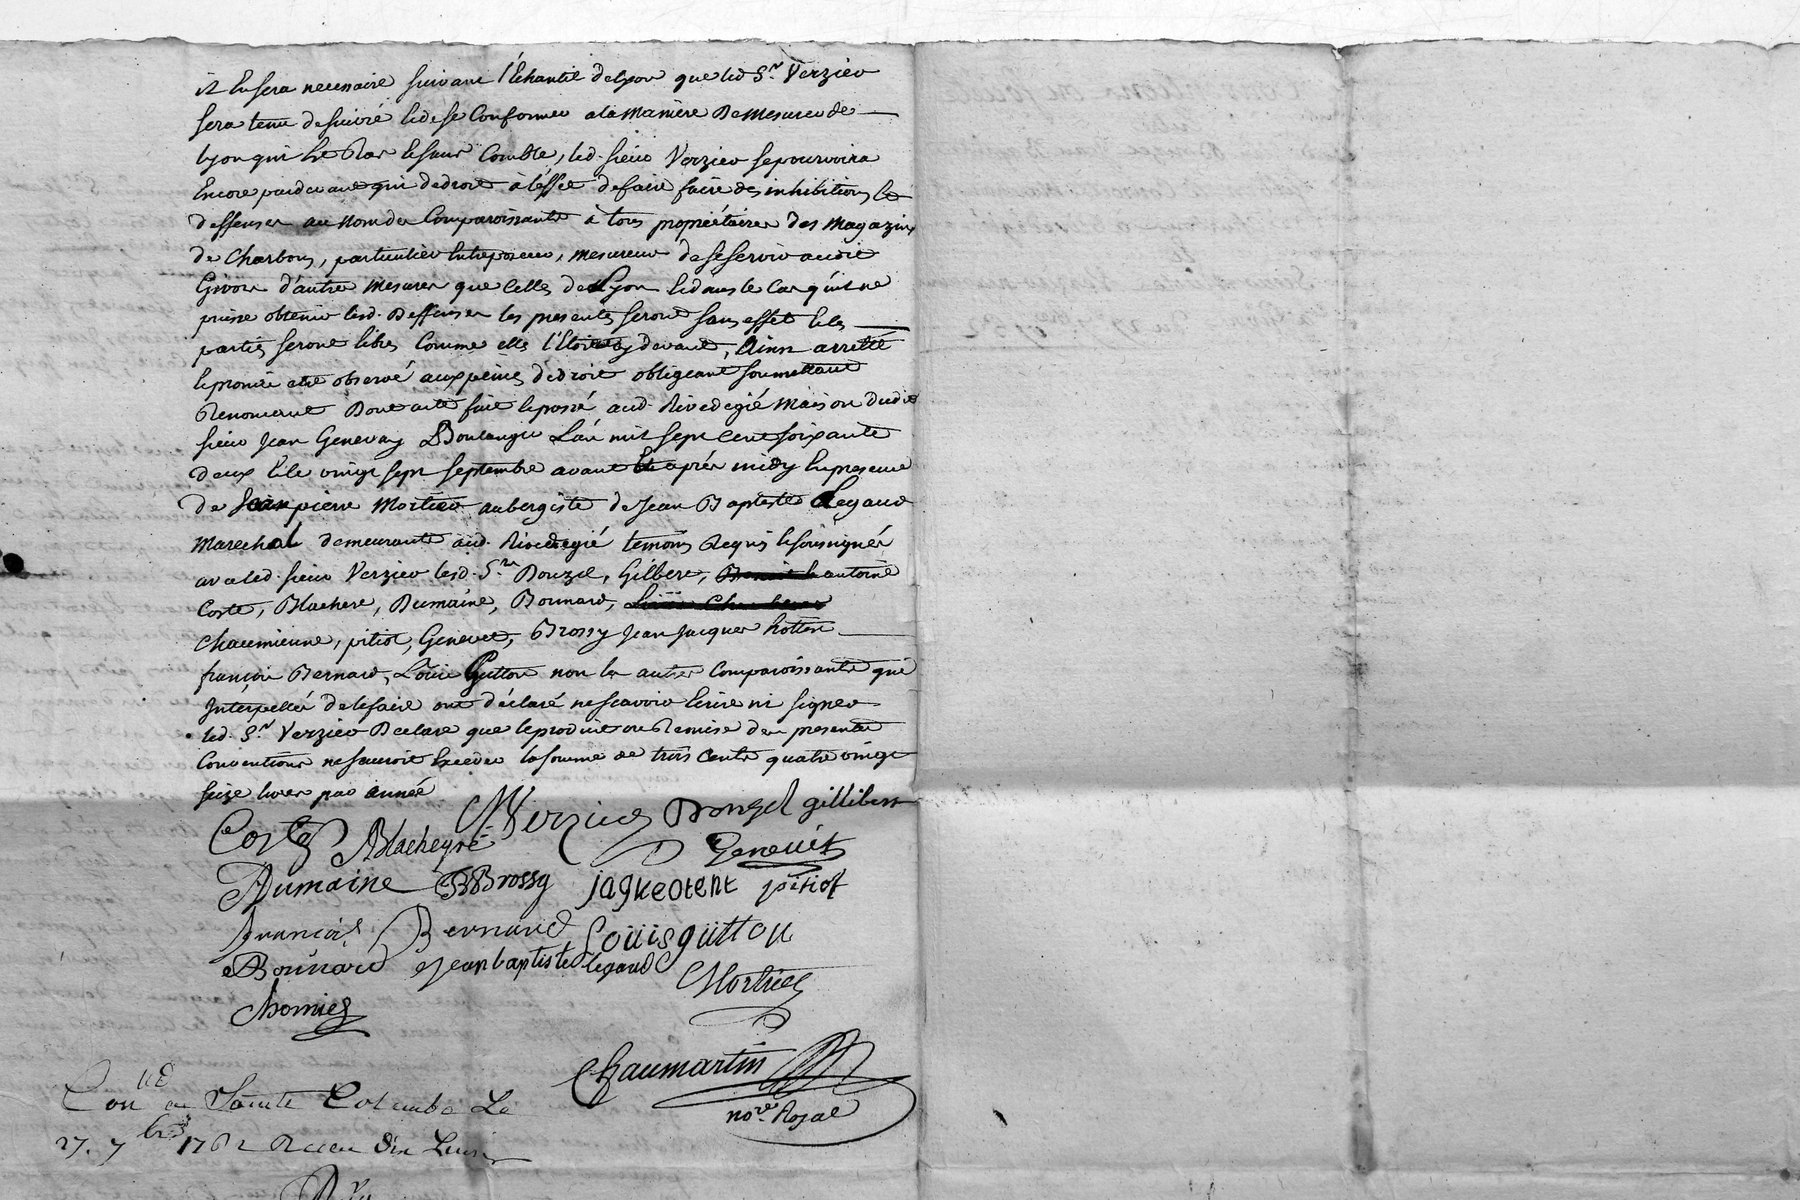 il en sera necessaire suivant l'Echantil de lyon que led Sr. Verzieu
sera tenu de suivre et de se Conformer a la maniere De mesurer de
lyon qui Est Ras et sans Comble, led. sieur Verzieu se pourvoira
Encore pardevant qui de droit à l'effet de faire faire des inhibitions Et
deffenses au nom des Comparoissants à tous propriétaires des magazins
de Charbons, particuliers Entreposeurs, mesureurs de se servir audit
Givors d'autres mesures que Celles de Lyon Et dans le Cas qu'il ne
puisse obtenir lesd. Deffenses les presentes seront sans effet Et les
parties seront libres Comme elles l'Etoient cy devant, Ainsy arretté
Et promis etre observé aux peines de droit obligeant soumettant
Renonceant Dont acte fait Et passé aud. Rivedegié maison dudit
sieur Jean Genevay Boulanger L'an mil sept Cent soixante
deux Et le vingt sept septembre avant Et après midy En presence
de Jean pierre Mortier aubergiste de Jean Baptiste Legaud
marechal demeurants aud. Rivedegié temoins Requis Et soussignés
avec led. sieur Verzieu lesd. Srs. Donzel, Gilbert, antoine
Coste, Blachere, Dumaine, Bonnard,
Chaumienne, pitiot, Genevet, Brossy Jean Jacques hotten
françois Bernard, Louis Guttou non les autres Comparoissants qui
Interpellés de le faire ont déclaré ne scavoir Ecrire ni signer
led. Sr. Verzieu Declare que le produit ou Remise des presentes
Conventions ne sauroit Exceder la somme de trois Cents quatre vingt
seize livres par année
Verzieu Donzel gillibert
Coste Blacheyre Genevet
Dumaine BBrossy jaqueotent pitiot
françois Bernard Louis guttou
Bonnard jean baptiste legaud Mortier
Chomier
Chaumartin
nore. Royal
Conllé a Sainte Colombe Le
27. 7bre 1762 Receu dix Livres